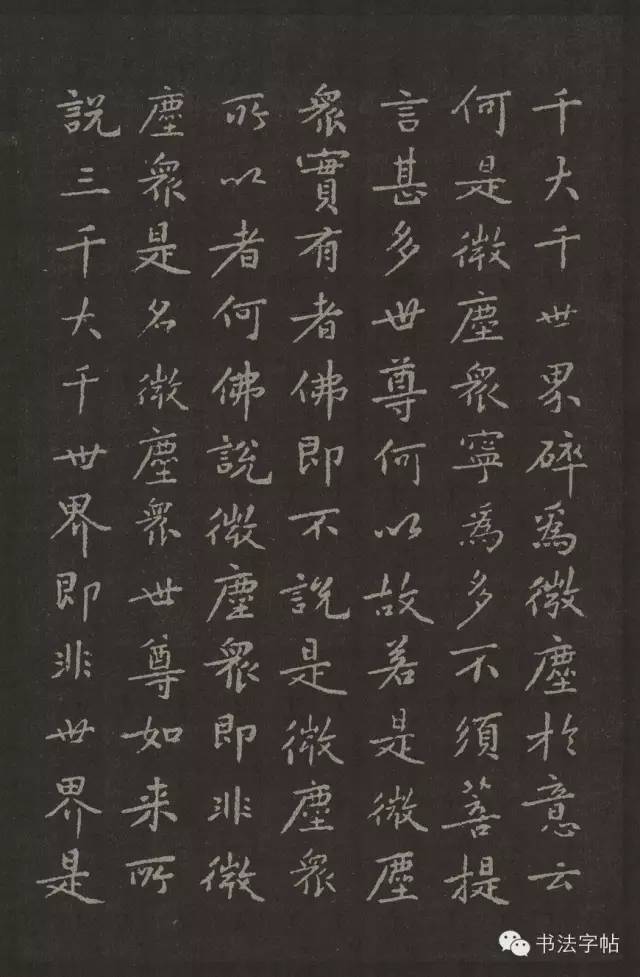 千大千世界碎為微塵於意云
何是微塵衆寧為多不須菩提
言甚多世尊何以故若是微塵
衆實有者佛即不說是微塵衆
所以者何佛說微塵衆即非微
塵衆是名微塵衆世尊如来所
說三千大千世界即非世界是
书法字帖